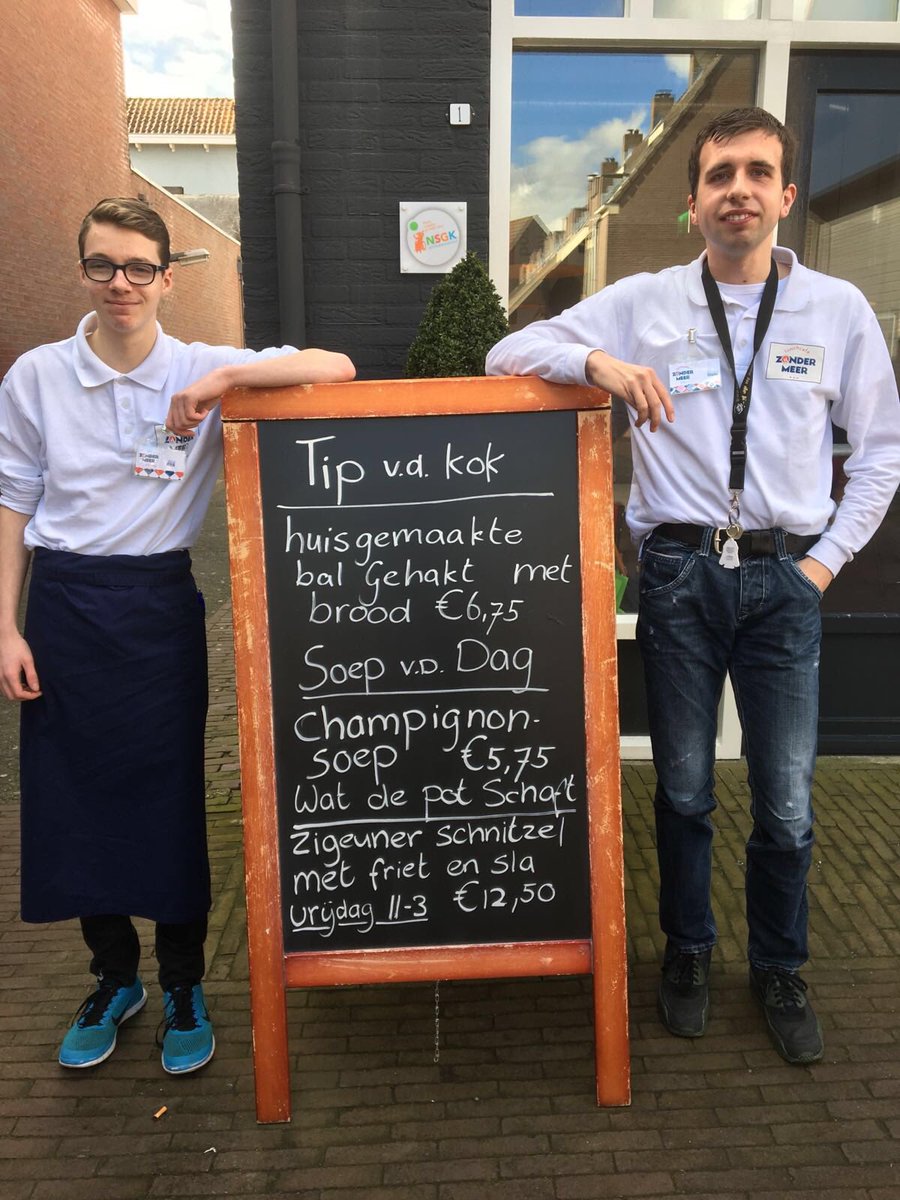 1
NSGK
ZONDER
MEER
ZONDER
MEER
ZONDER
MEER
ZONDER
MEER
Tip v.d. kok
huisgemaakte
bal Gehakt met
brood €6,75
Soep v.D. Dag
Champignon-
soep €5,75
Wat de pot Schaft
Zigeuner schnitzel
met friet en sla
vrijdag 11-3 €12,50